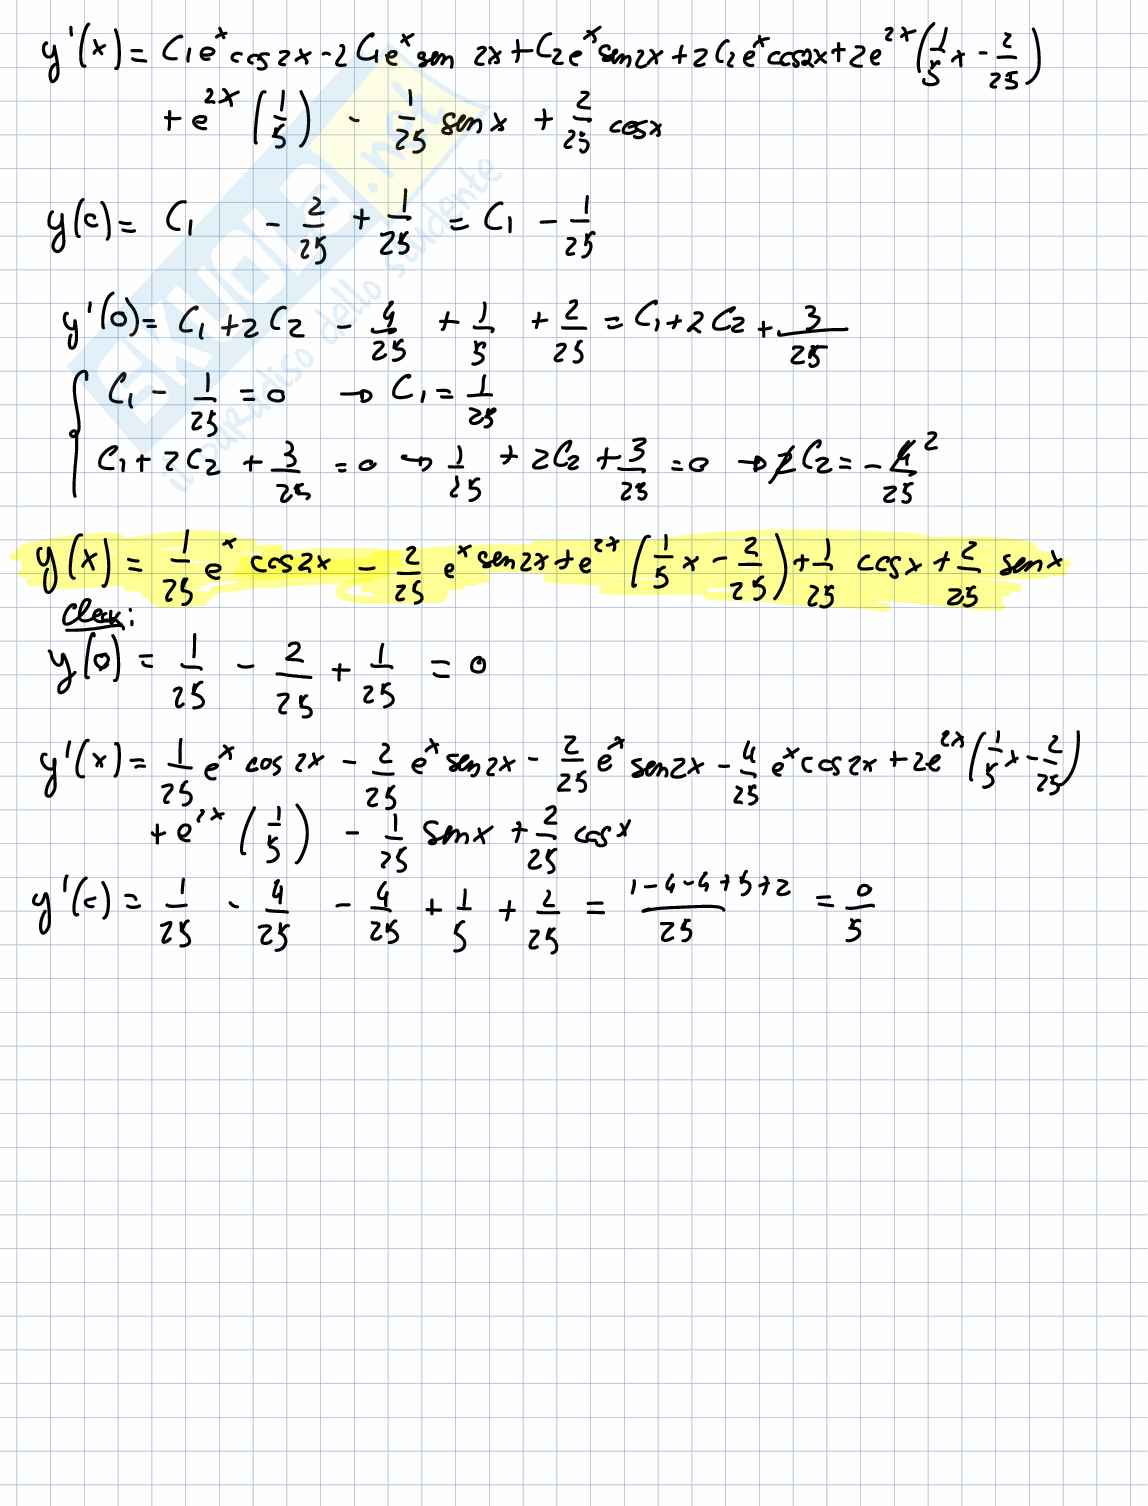 y'(x) = C₁eˣcos2x - 2C₁eˣsen 2x + C₂eˣsen2x + 2C₂eˣcos2x + 2e²ˣ(1/5 x - 2/25)
+ e²ˣ(1/5) - 1/25 senx + 2/25 cosx
y(0) = C₁ - 2/25 + 1/25 = C₁ - 1/25
y'(0) = C₁ + 2C₂ - 4/25 + 1/5 + 2/25 = C₁ + 2C₂ + 3/25
C₁ - 1/25 = 0 → C₁ = 1/25
C₁ + 2C₂ + 3/25 = 0 → 1/25 + 2C₂ + 3/25 = 0 → 2C₂ = -4/25 2
y(x) = 1/25 eˣ cos2x - 2/25 eˣ sen2x + e²ˣ(1/5 x - 2/25) + 1/25 cosx + 2/25 senx
Check:
y(0) = 1/25 - 2/25 + 1/25 = 0
y'(x) = 1/25 eˣ cos 2x - 2/25 eˣ sen2x - 2/25 eˣ sen2x - 4/25 eˣcos2x + 2e²ˣ(1/5 x - 2/25)
+ e²ˣ(1/5) - 1/25 senx + 2/25 cosx
y'(0) = 1/25 - 4/25 - 4/25 + 1/5 + 2/25 = (1-4-4+5+2)/25 = 0/5
SKUOLA.net
il paradiso dello studente